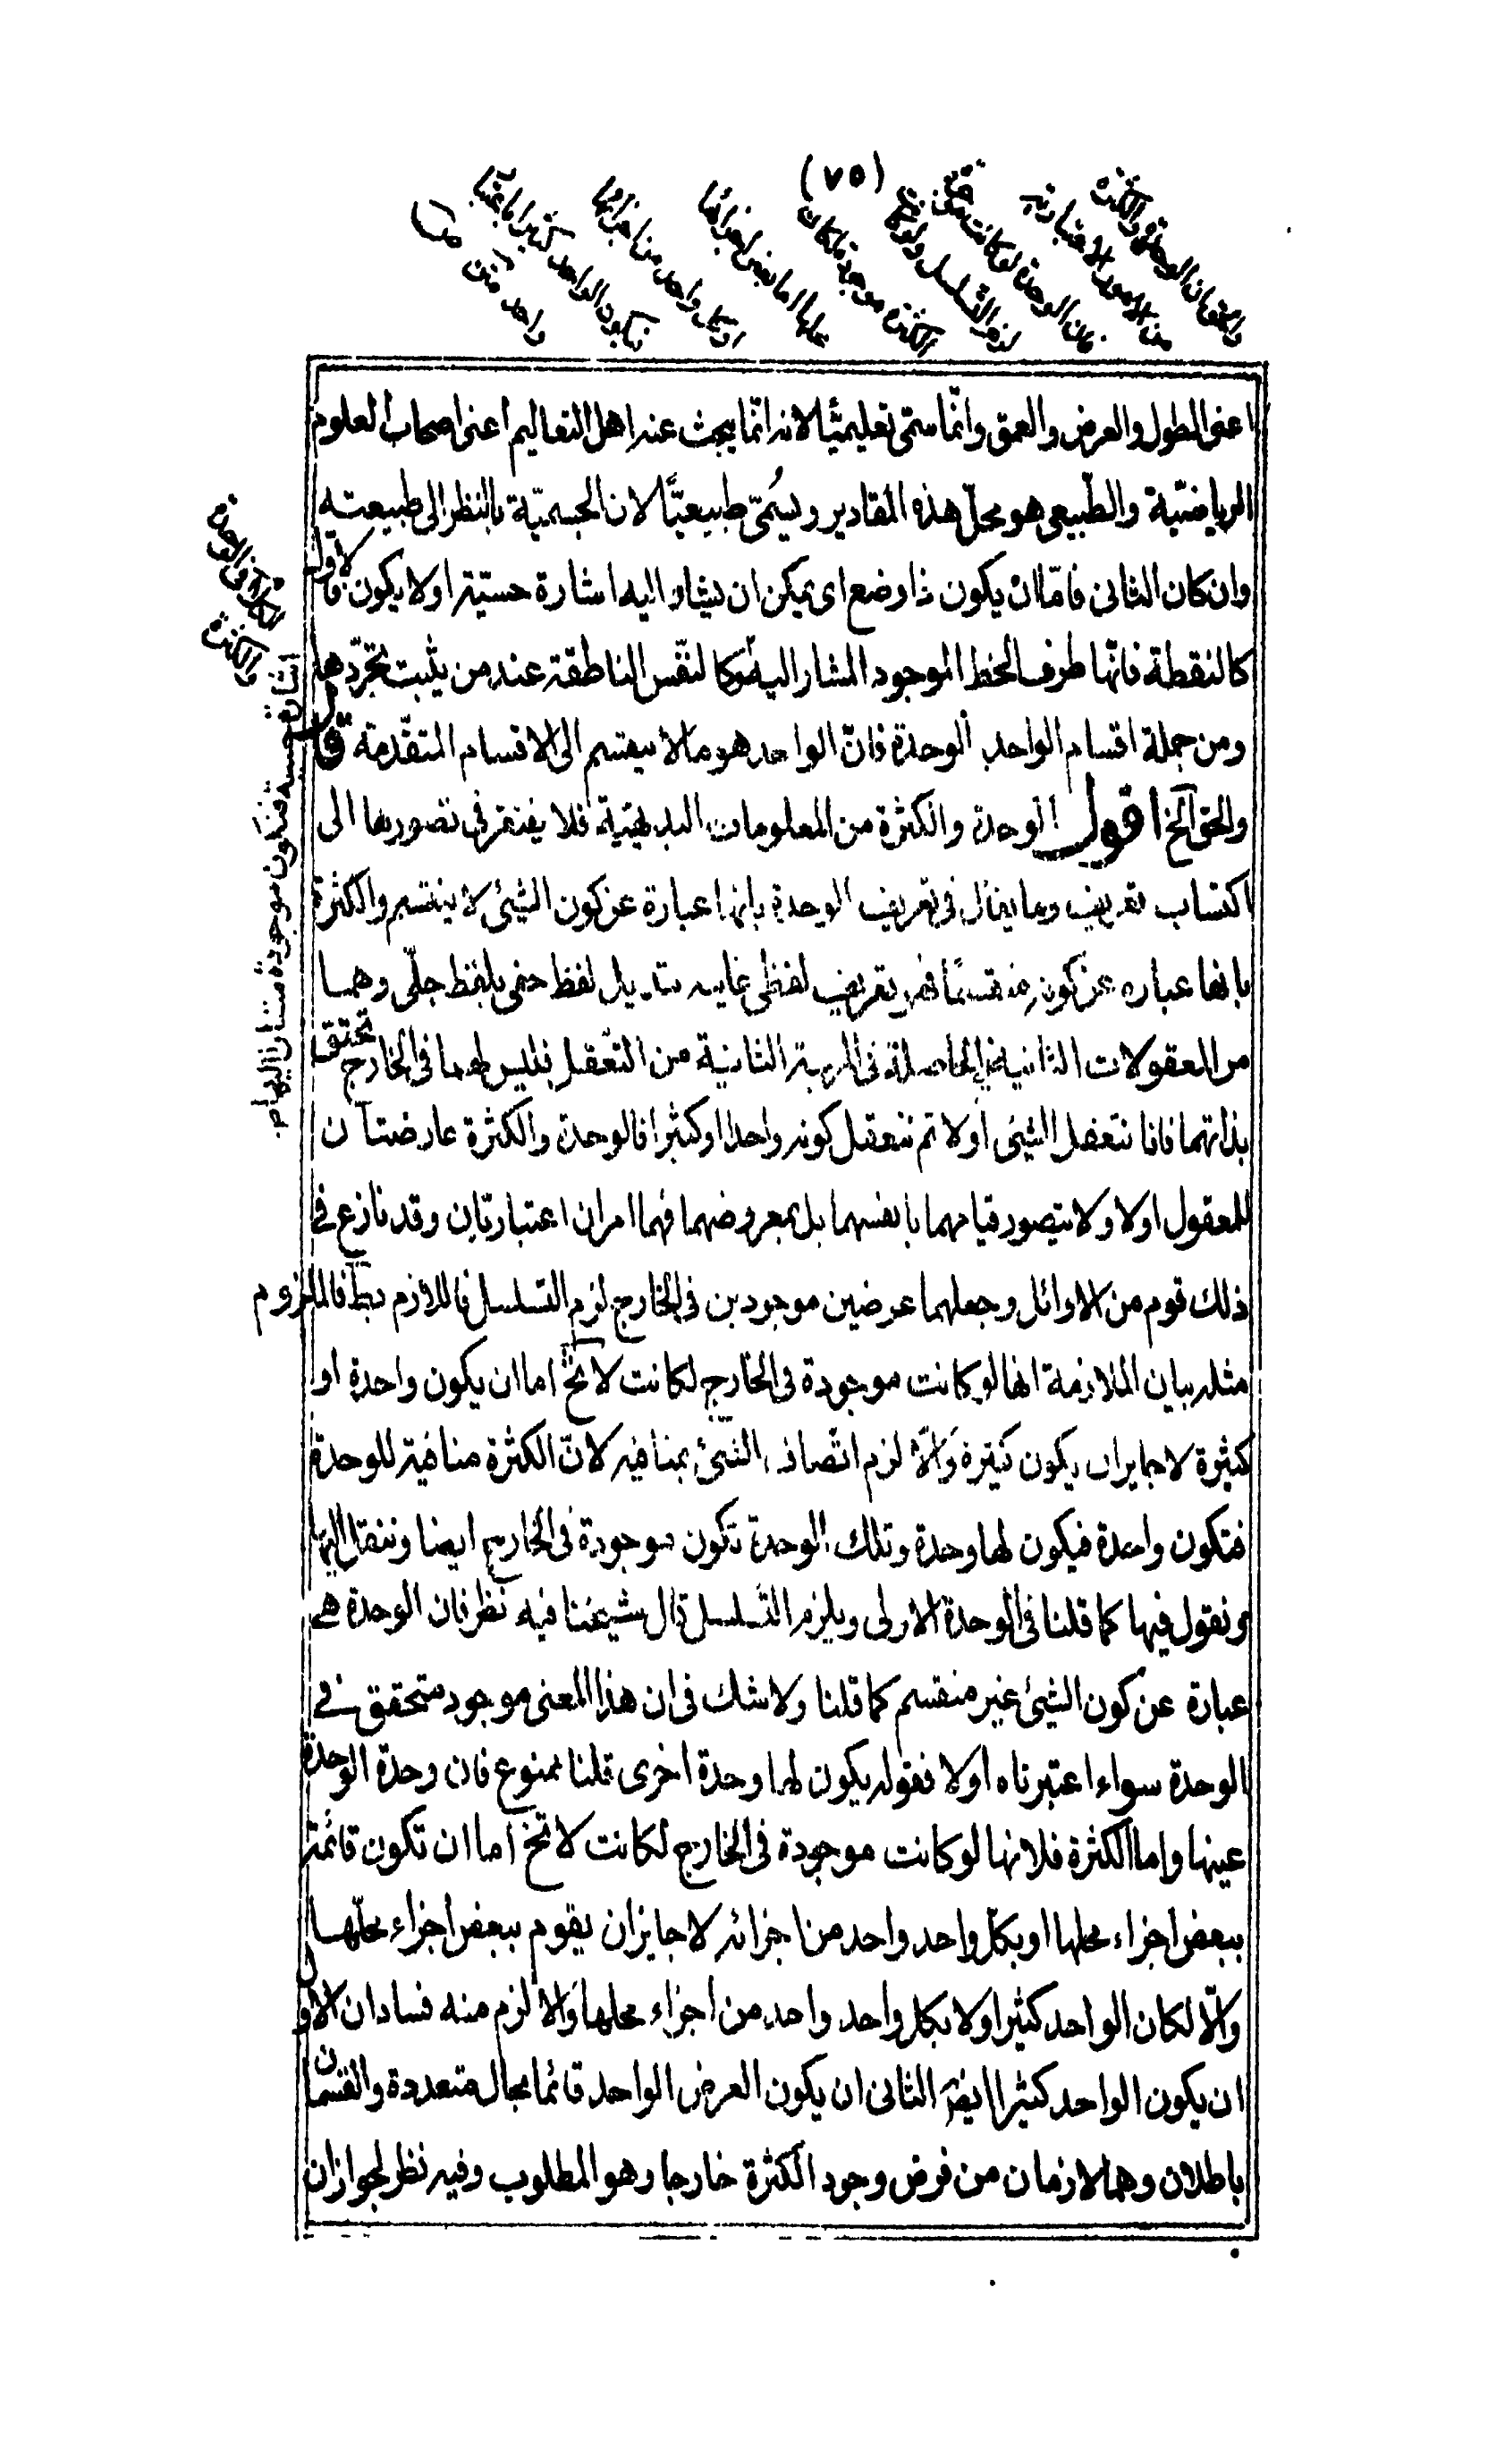 (٧٥)
والحق ان الوحدة والكثرة
من الامور الاعتبارية
فان الوحدة لو كانت موجودة
لزم التسلسل ولو كانت
الكثرة موجودة لكان
محلها اما بعض اجزائها
او كل واحد من اجزائها
فيكون الواحد كثيرا
اعنى الطول والعرض والعمق وانّما سمّى تعليميّا لانه انّما يبحث عنه اهل التعاليم اعنى اصحاب العلوم
الرياضيّة والطّبيعى هو محلّ هذه المقادير ويسُمّى طبيعيّا لان الجسميّة بالنظر الى طبيعته
وان كان الثانى فامّا ان يكون ذا وضع اى يمكن ان يشار اليه اشارة حسيّة اولا يكون فالاول
كالنقطة فانّها طرف الخط الموجود المشار اليه وكالنّفس الناطقة عند من يثبت تجرّدها
ومن جملة اقسام الواحد الوحدة فانّ الواحد هو ما لا ينقسم الى الاقسام المتقدّمة قال
والحق الخ اقول الوحدة والكثرة من المعلومات البديهيّة فلا يفتقر فى تصورهما الى
اكتساب تعريف وما يقال فى تعريف الوحدة بانها عبارة عن كون الشيئ لا ينقسم والكثرة
بانها عباره عن كونه منقسمًا فهو تعريف لفظى غايته تبديل لفظ خفى بلفظ جلّى وهما
من المعقولات الثانية الحاصلة فى المرتبة الثانية من التعقل فليس لهما فى الخارج تحقق
بذاتهما فانا نتعقل الشيئ اولا ثم نتعقل كونه واحدا او كثيرا فالوحدة والكثرة عارضتان
للمعقول اولا ولا يتصور قيامهما بانفسهما بل بمعروضهما فهما امران اعتباريّان وقد نازع فى
ذلك قوم من الاوائل وجعلهما عرضين موجودين فى الخارج لزم التسلسل فاللازم بط فالملزوم
مثله بيان الملازمة انها لو كانت موجودة فى الخارج لكانت لا تخ اما ان يكون واحدة او
كثيرة لا جايز ان يكون كثيرة وَالّا لزم اتّصاف الشيئ بمنافيه لانّ الكثرة منافية للوحدة
فتكون واحدة فيكون لها وحدة وتلك الوحدة تكون موجودة فى الخارج ايضا وننقل اليها
ونقول فيها كما قلنا فى الوحدة الاولى ويلزم التسلسل قال شيخنا فيه نظر فان الوحدة هى
عبارة عن كون الشيئ غير منقسم كما قلنا ولا شك فى ان هذا المعنى موجود متحقق فى
الوحدة سواء اعتبرناه اولا فقوله يكون لها وحدة اخرى قلنا ممنوع فان وحدة الوحدة
عينها واما الكثرة فلانها لو كانت موجودة فى الخارج لكانت لا تخ اما ان تكون قائمة
ببعض اجزاء محلها او بكل واحد واحد من اجزائه لا جايز ان يقوم ببعض اجزاء محلّها
والّا لكان الواحد كثيرا ولا بكل واحد واحد من اجزاء محلها وَالا لزم منه فسادان الاول
ان يكون الواحد كثيرا ايضا الثانى ان يكون العرض الواحد قائما بمحال متعددة والقسمان
باطلان وهما لازمان من فرض وجود الكثرة خارجا وهو المطلوب وفيه نظر لجواز ان